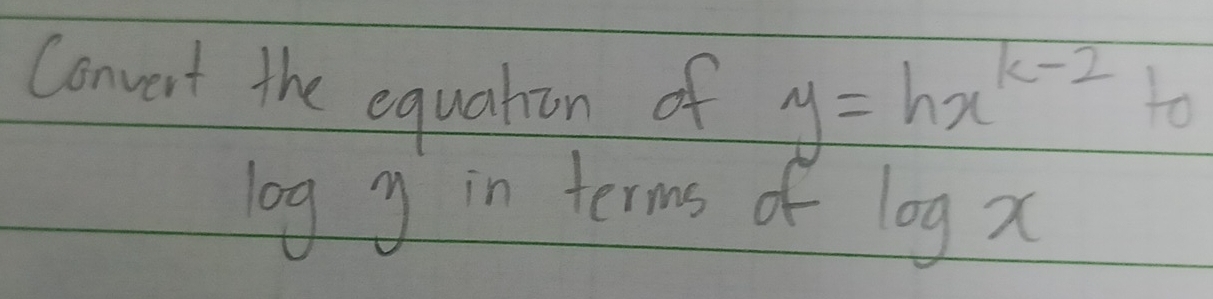 Convert the equation of y = hx^{k-2} to
log y in terms of log x